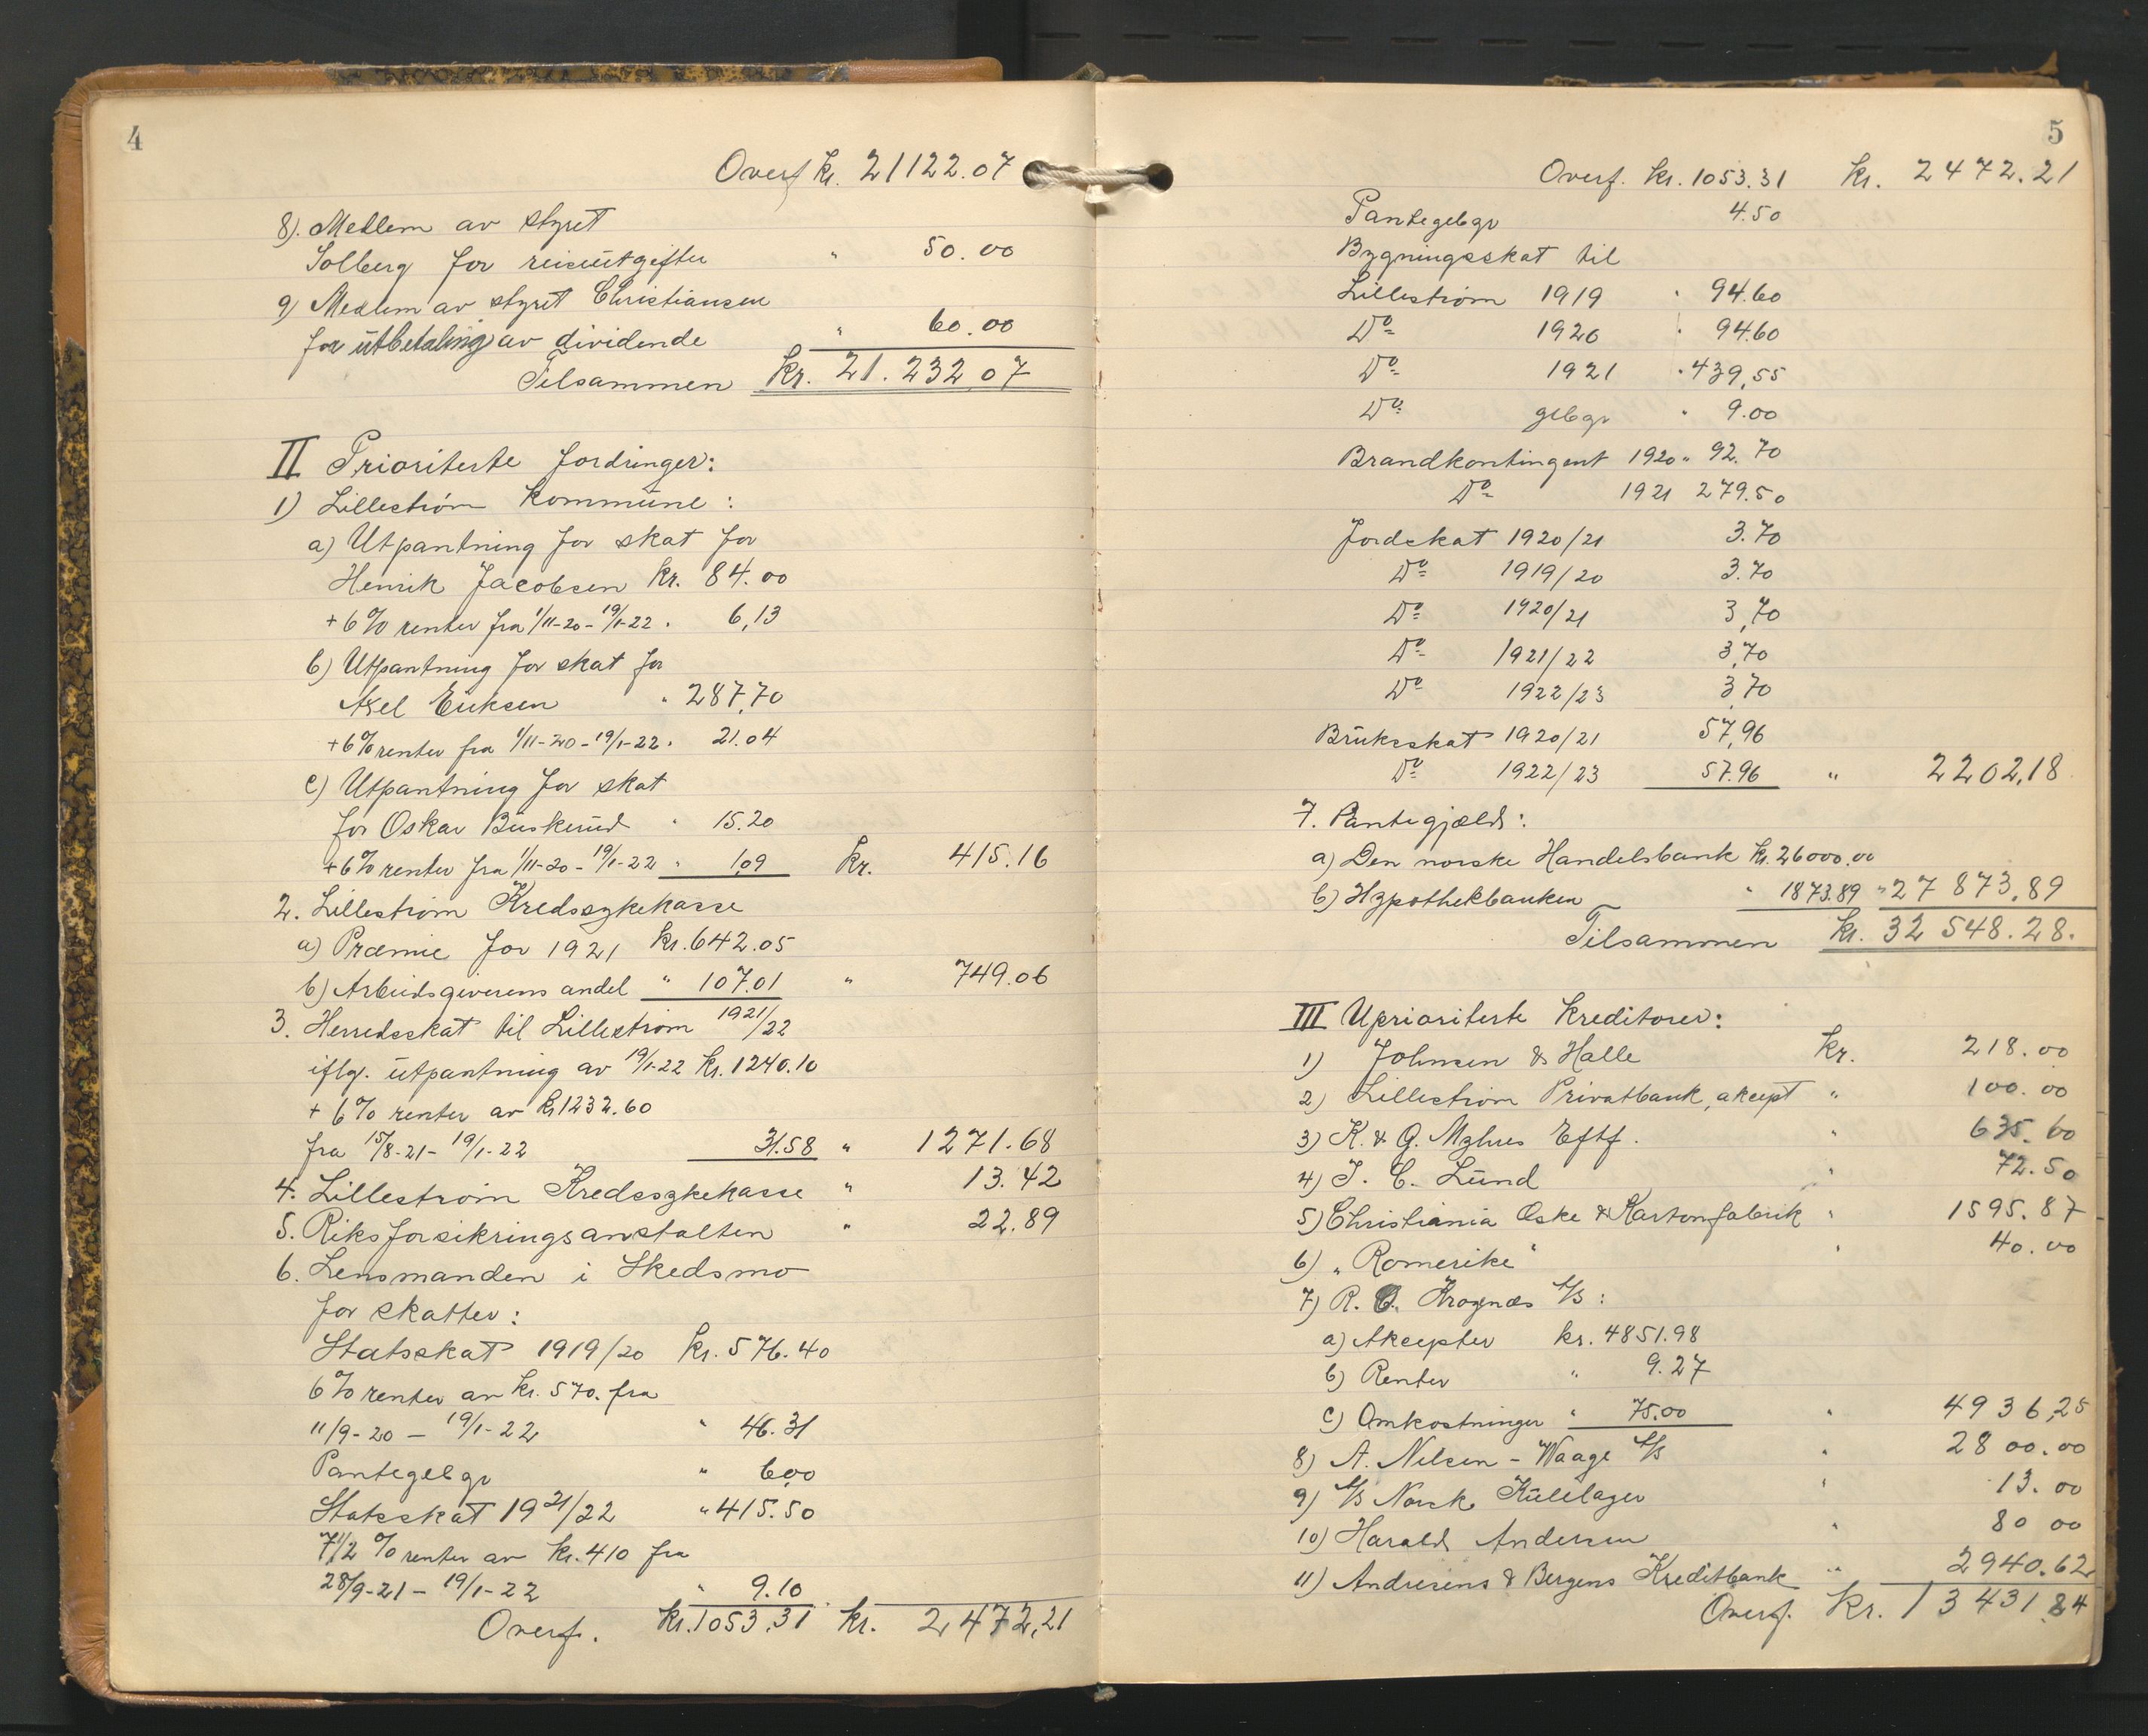 4
Overf kr. 21122.07
8). Medlem av styret
Solberg for reiseutgifter " 50.00
9) Medlem av styret Christiansen
for utbetaling av dividende " 60.00
Tilsammen kr. 21.232,07
II Prioriterte fordringer:
1) Lillestrøm kommune:
a) Utpantning for skat for
Henrik Jacobsen kr. 84.00
+ 6% renter fra 1/11-20 - 19/1-22 . 6,13
b) Utpantning for skat for
Axel Eriksen " 287,70
+ 6% renter fra 1/11-20 - 19/1-22 . 21.04
c) Utpantning for skat
for Oskar Buskerud " 15.20
+ 6% renter fra 1/11-20 - 19/1-22 " 1,09 kr. 415.16
2. Lillestrøm Kredssykekasse
a) Præmie for 1921 kr. 642.05
b) Arbeidsgiverens andel " 107.01 " 749.06
3. Herredsskat til Lillestrøm 1921/22
iflg. utpantning av 19/1-22 kr. 1240.10
+ 6% renter av kr 1232.60
fra 15/8-21 - 19/1-22 31.58 " 1271.68
4. Lillestrøm Kredssykekasse " 13.42
5. Riksforsikringsanstalten " 22.89
6. Lensmanden i Skedsmo
for skatter:
Statsskat 1919/20 kr. 576.40
6% renter av kr. 570. fra
11/9-20 - 19/1-22 " 46.31
Pantegebyr " 6,00
Statsskat 1921/22 " 415.50
7 1/2 % renter av kr. 410 fra
28/9-21 - 19/1-22 " 9.10
Overf. kr. 1053,31 kr. 2472,21
5
Overf. kr. 1053.31 kr. 2472.21
Pantegebyr 4.50
Bygningsskat til
Lillestrøm 1919 " 94.60
Do 1920 " 94.60
Do 1921 " 439,55
Do gebyr " 9.00
Brandkontingent 1920 " 92.70
Do 1921 279.50
Jordskat 1920/21 3.70
Do 1919/20 3.70
Do 1920/21 3,70
Do 1921/22 3,70
Do 1922/23 3,70
Bruksskat 1920/21 57,96
Do 1922/23 57.96 " 2202,18
7. Pantegjæld:
a) Den norske Handelsbank kr. 26000.00
b) Hypothekbanken " 1873.89 " 27873,89
Tilsammen kr. 32548.28.
III Uprioriterte kreditorer:
1) Johnsen & Halle kr. 218.00
2) Lillestrøm Privatbank, aksept " 100.00
3) K. & G. Myhres Eftf. " 635.60
4) J. C. Lund " 72.50
5) Christiania Eske & Kartonfabrik " 1595.87
6) "Romerike" " 40.00
7) R. O. Krognæs A/S:
a) Aksepter kr. 4851.98
b) Renter " 9.27
c) Omkostninger " 75.00 " 4936,25
8) A. Nilsen - Waage A/S " 2800.00
9) A/S Norsk Kulelager " 13.00
10) Harald Andersen " 80 00
11) Andresens & Bergens Kreditbank " 2940.62
Overf. kr. 13431,84